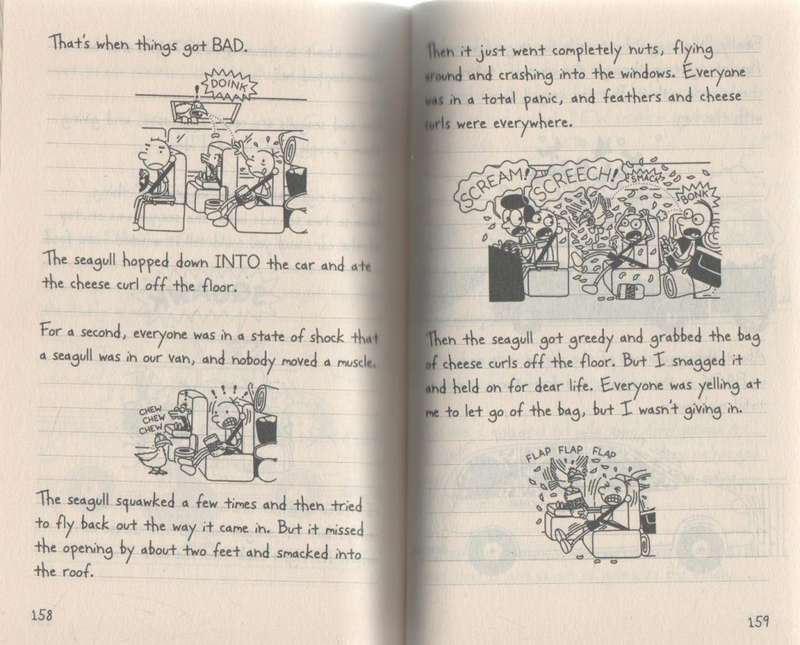 That's when things got BAD.
DOINK
The seagull hopped down INTO the car and ate
the cheese curl off the floor.
For a second, everyone was in a state of shock that
a seagull was in our van, and nobody moved a muscle.
CHEW
CHEW
CHEW
! ! ! !
The seagull squawked a few times and then tried
to fly back out the way it came in. But it missed
the opening by about two feet and smacked into
the roof.
158
Then it just went completely nuts, flying
around and crashing into the windows. Everyone
was in a total panic, and feathers and cheese
curls were everywhere.
SCREAM!
SCREECH!
SMACK
BONK
Then the seagull got greedy and grabbed the bag
of cheese curls off the floor. But I snagged it
and held on for dear life. Everyone was yelling at
me to let go of the bag, but I wasn't giving in.
FLAP FLAP FLAP
159